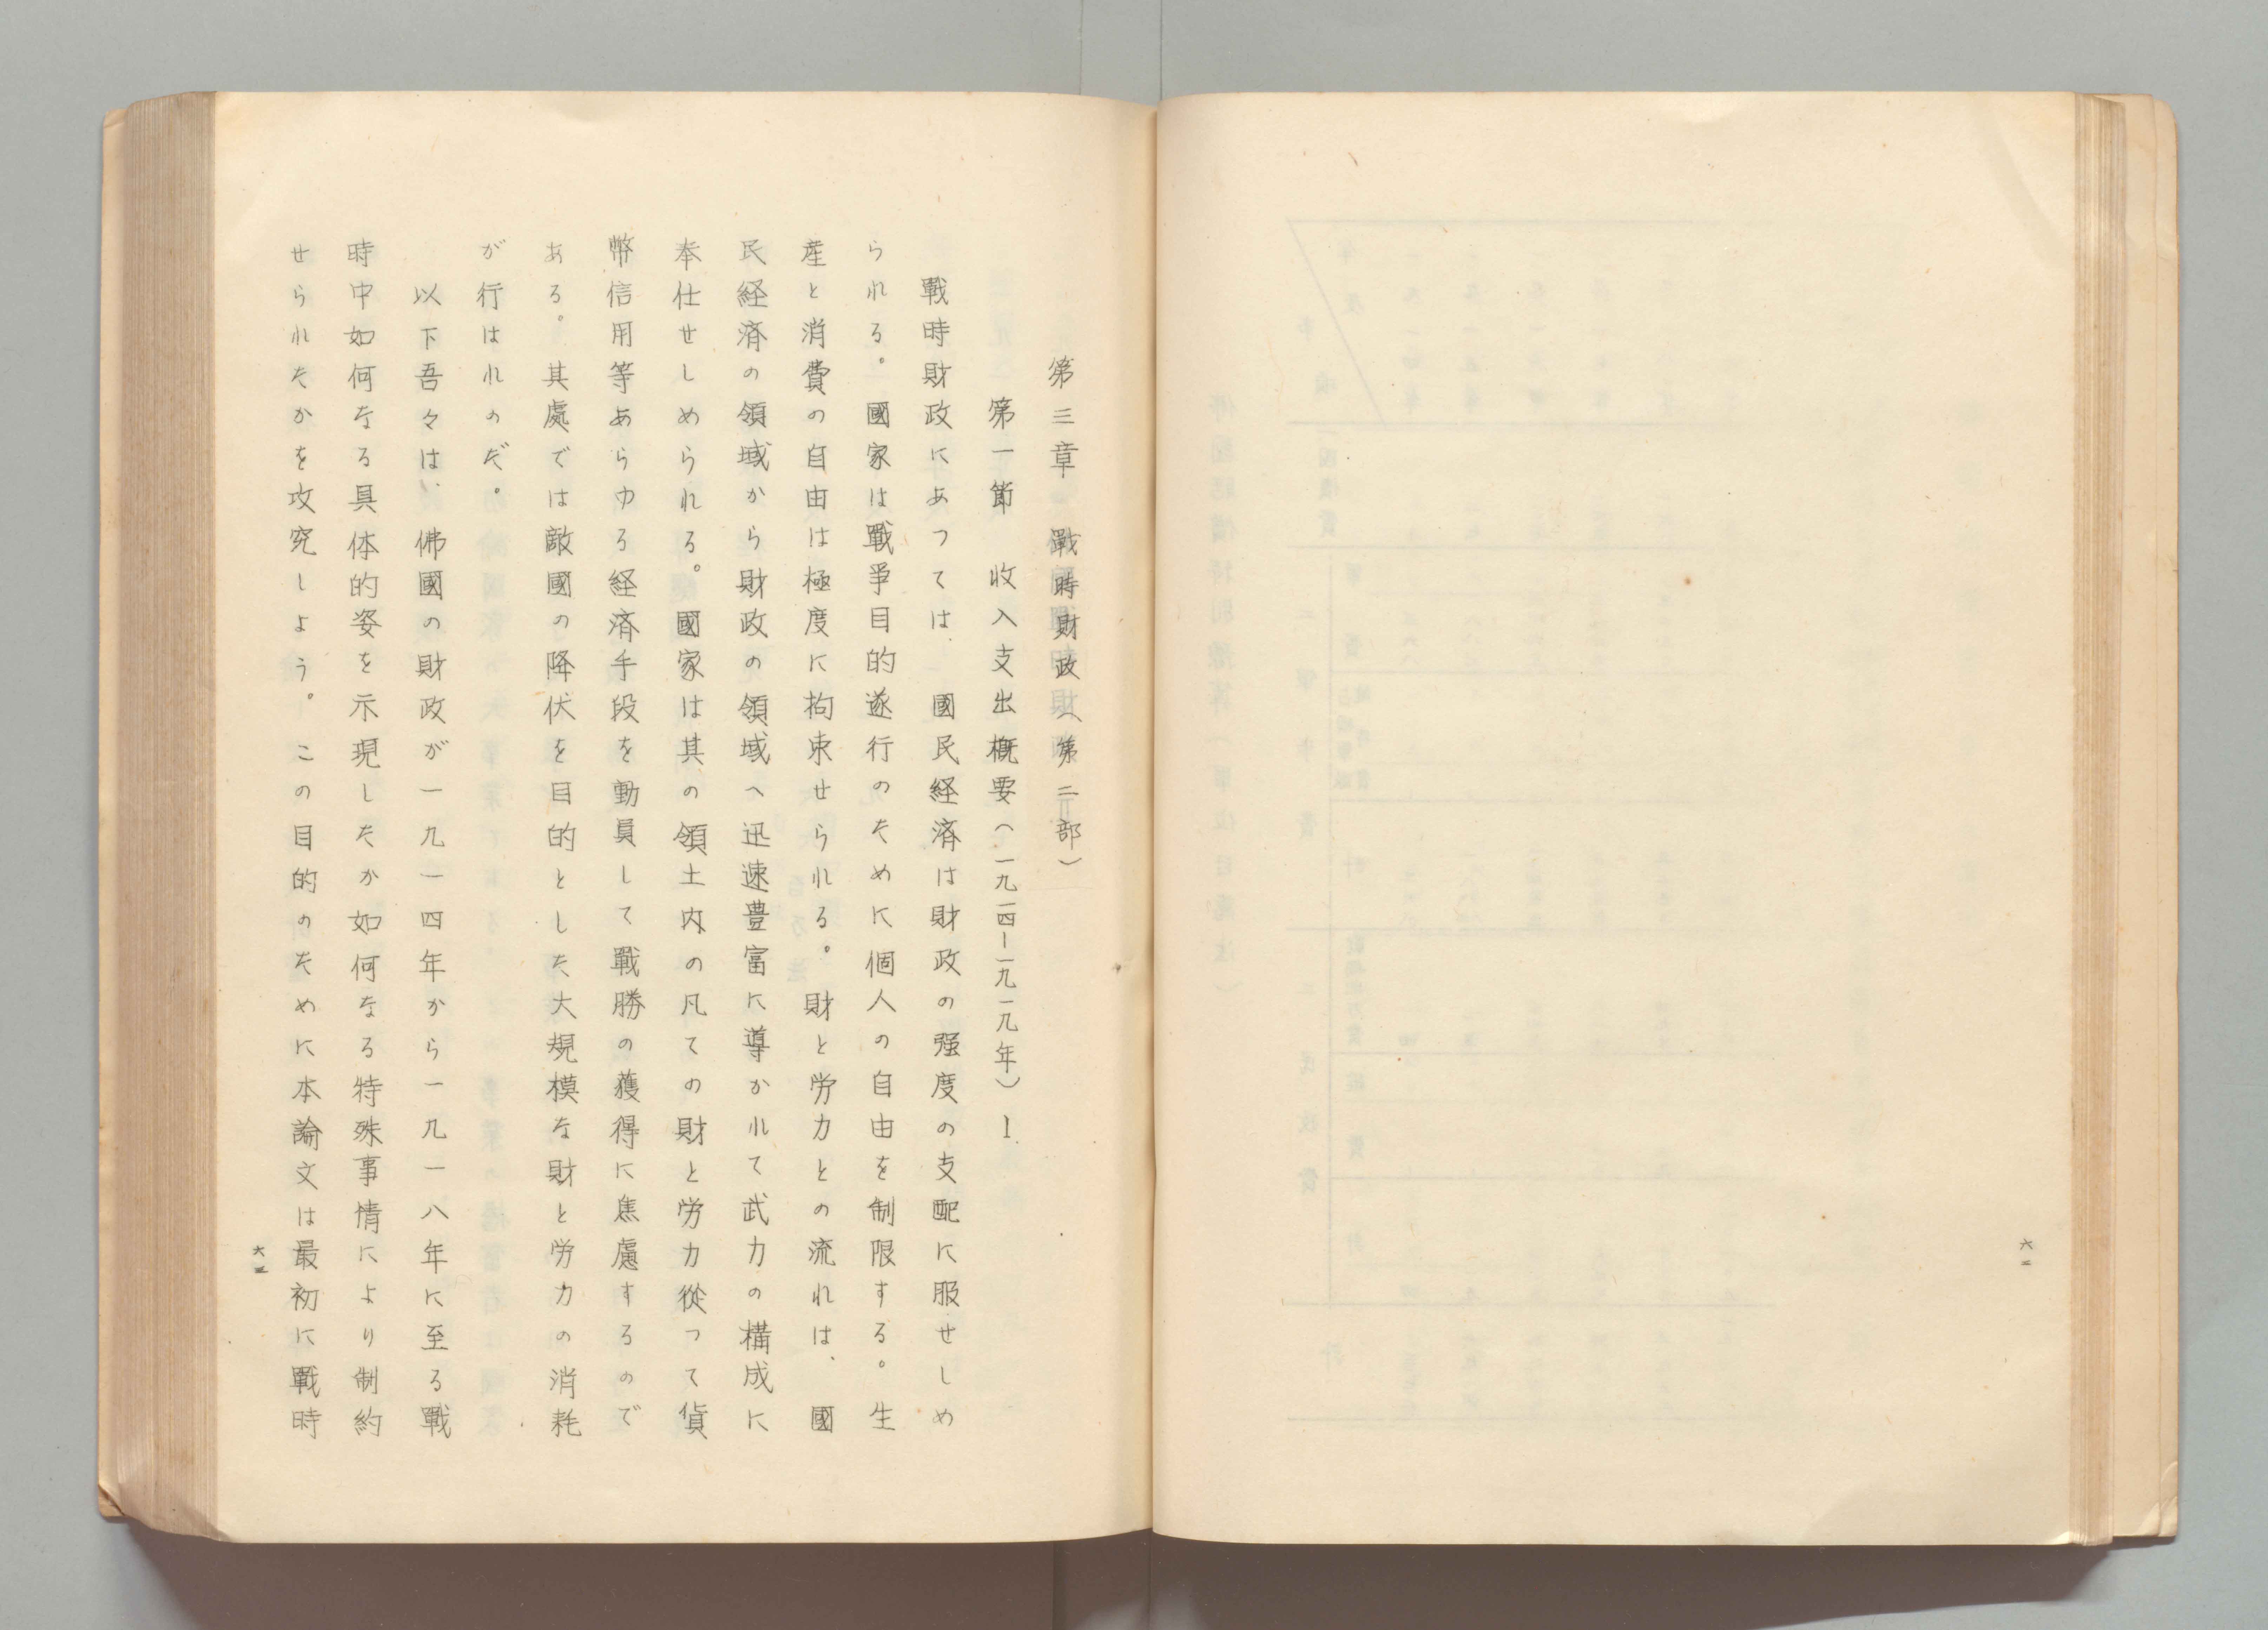 六二
第三章　戰時財政（第二部）
第一節　收入支出概要（一九一四―一九一九年）―
戰時財政にあつては、國民経済は財政の强度の支配に服せしめ
られる。國家は戰爭目的遂行のために個人の自由を制限する。生
産と消費の自由は極度に拘束せられる。財と労力との流れは、國
民経済の領域から財政の領域へ迅速豊富に導かれて武力の構成に
奉仕せしめられる。國家は其の領土内の凡ての財と労力従つて貨
幣信用等あらゆる経済手段を動員して戰勝の獲得に焦慮するので
ある。其處では敵國の降伏を目的とした大規模な財と労力の消耗
が行はれのだ。
以下吾々は、佛國の財政が一九一四年から一九一八年に至る戰
時中如何なる具体的姿を示現したか如何なる特殊事情により制約
せられたかを攻究しよう。この目的のために本論文は最初に戰時
六三